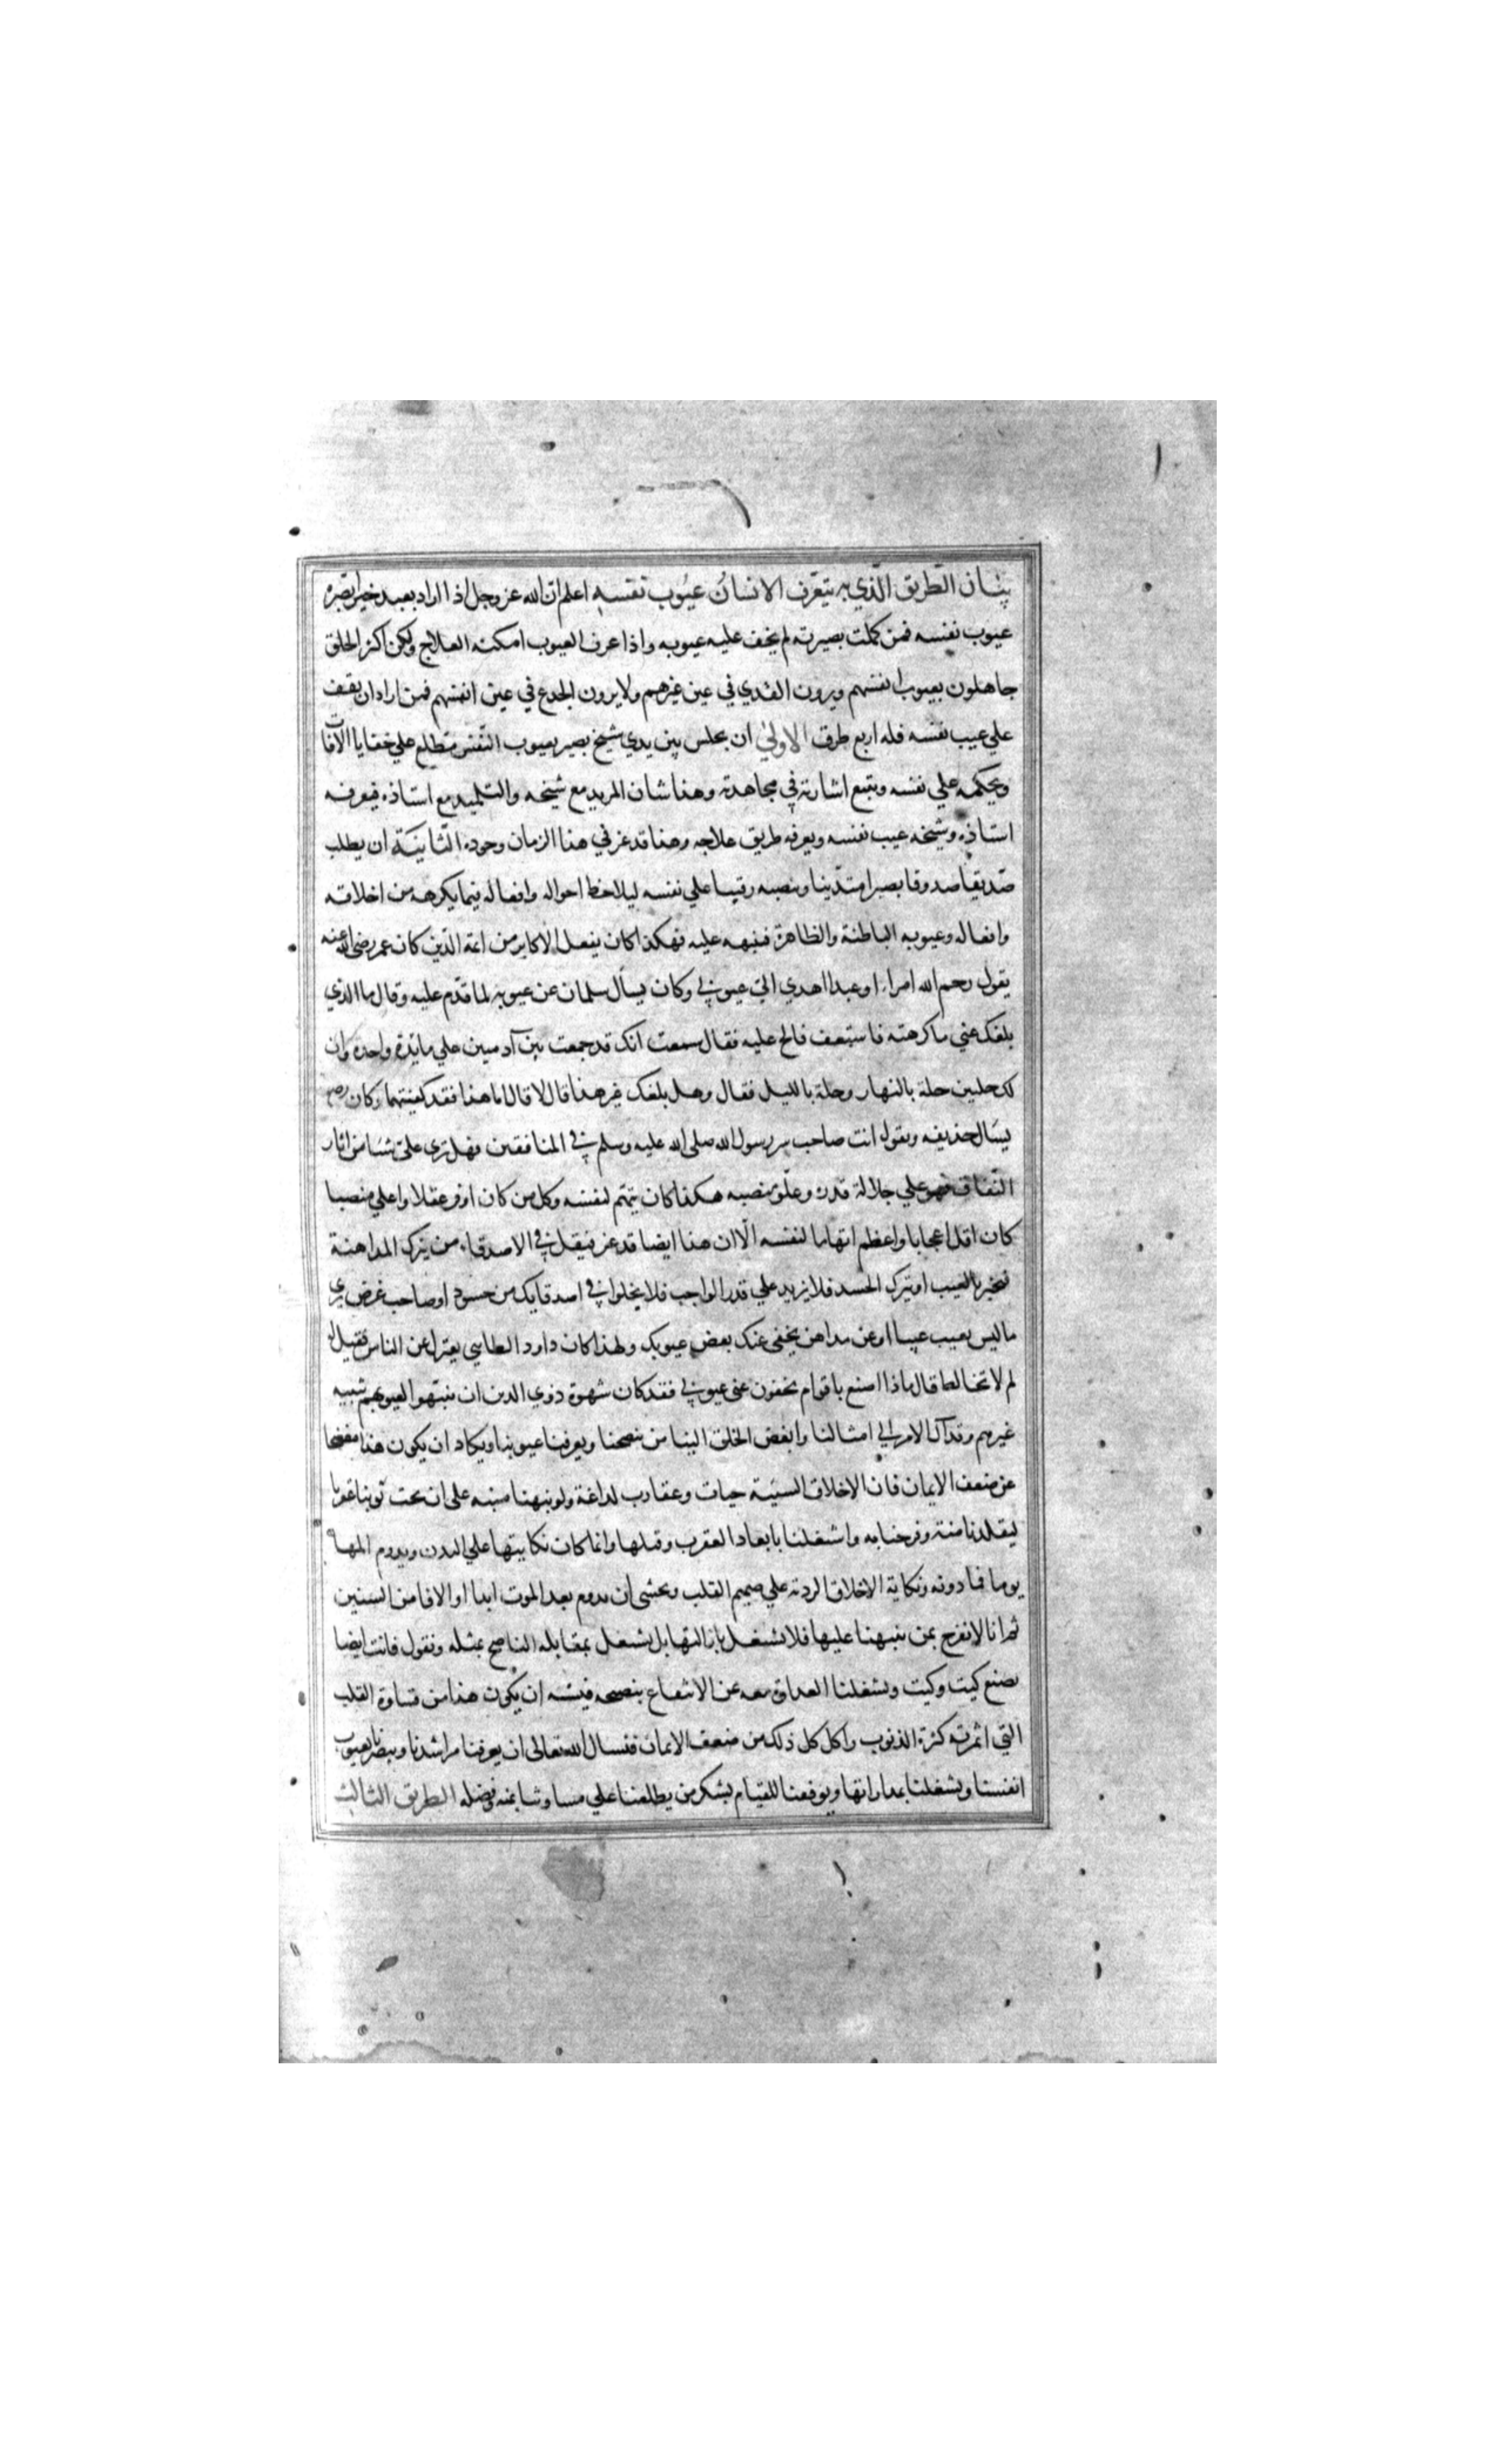 بيان الطّريق الّذي به يتعرّف الانسانُ عيُوب نفسه اعلم ان الله عز وجل اذا اراد بعبد خيرا بصّره
عيوب نفسه فمن كملت بصيرته لم يخف عليه عيوبه واذا عرف العيوب امكنه العلاج ولكن اكثر الخلق
جاهلون بعيوب انفسهم ويرون القذي في عين غيرهم ولا يرون الجدع في عين انفسهم فمن اراد ان يقف
علي عيب نفسه فله اربع طرق الاولي ان يجلس بين يدي شيخ بصير بعيوب النّفس متطلع علي خفايا الآفات
ويحكمه علي نفسه ويتبع اشارته في مجاهدته وهذا شان المريد مع شيخه والتلميذ مع استاذه فيعرفه
استاذه وشيخه عيب نفسه ويعرفه طريق علاجه وهذا قد عز في هذا الزمان وجوده الثّانيَة ان يطلب
صديقا صدوقا بصيرا متدّينا وينصبه رقيبا علي نفسه ليلاحظ احواله وافعاله فيما يكرهه من اخلاقه
وافعاله وعيوبه الباطنة والظاهرة فينبهه عليه فهكذا كان يفعل الاكابر من ائمة الدّين كان عمر رضى الله عنه
يقول رحم الله امراء او عبدا اهدي الىّ عيوبي وكان يسأل سلمان عن عيوبه لما قدّم عليه وقال ما الذي
بلغك عني ما كرهته فاستعف فالح عليه فقال سمعت انك قد جمعت بين آدمين علي مائدة واحدة وان
لك حلتين حلة بالنهار وحلة بالليل فقال وهل بلغك غير هذا قال لا قال اما هذا فقد كفيتهما وكان رضه
يسَال حذيفه ويقول انت صاحب سر رسول الله صلى الله عليه وسلم في المنافقين فهل تري علىّ شيئا من اثار
النّفاق فهو علي جلالة قدره وعلوّ منصبه هكذا كان يتهم لنفسه وكل من كان اوفر عقلا واعلي منصبا
كان اقل اعجابا واعظم اتهاما لنفسه الّا ان هذا ايضا قد عز فيقل في الاصدقاء من يترك المداهنة
فيخبر بالعيب او يترك الحسد فلا يزيد علي قدر الواجب فلا يخلوا في اصدقايك من حسود او صاحب غرض يري
ما ليس بعيب عيبا او عن مداهن يخفي عنك بعض عيوبك ولهذا كان داود الطايي يعتزل عن الناس فقيل له
لم لا تخالط قال ماذا اصنع باقوام يخفون عني عيوبي فقد كان شهوة ذوي الدين ان ينبّهوا لعيوبهم تنبيه
غيرهم وقد آل الامر الي امثالنا وابغض الخلق الينا من ينصحنا ويعرفنا عيوبنا ويكاد ان يكون هذا مفصحا
عن ضعف الايمان فان الاخلاق السيّئة حيات وعقارب لداغة ولو نبهنا منبه على ان تحت ثوبنا عقربا
لتقلدنا منة وفرحنا به واشتغلنا بابعاد العقرب وقتلها وانما كان نكايتها علي البدن ويدوم المها
يوما فما دونه ونكاية الاخلاق الردية علي صميم القلب ويخشى ان يدوم بعد الموت ابدا او الافا من السنين
ثم انا لا نفرح بمن ينبهنا عليها فلا نشتغل بازالتها بل نشتغل بمقابلة الناصح بمثله ونقول فانت ايضا
تصنع كيت وكيت ويشغلنا العداوة معه عن الانتفاع بنصحه فيشبه ان يكون هذا من قساوة القلب
التي اثمرته كثرة الذنوب واكل كل ذلك من ضعف الايمان فنسال الله تعالى ان يعرفنا مراشدنا ويبصرنا بعيوب
انفسنا ويشغلنا بمداراتها ويوفقنا للقيام بشكر من يطلعنا علي مساوئنا بمنه وفضله الطريق الثالث